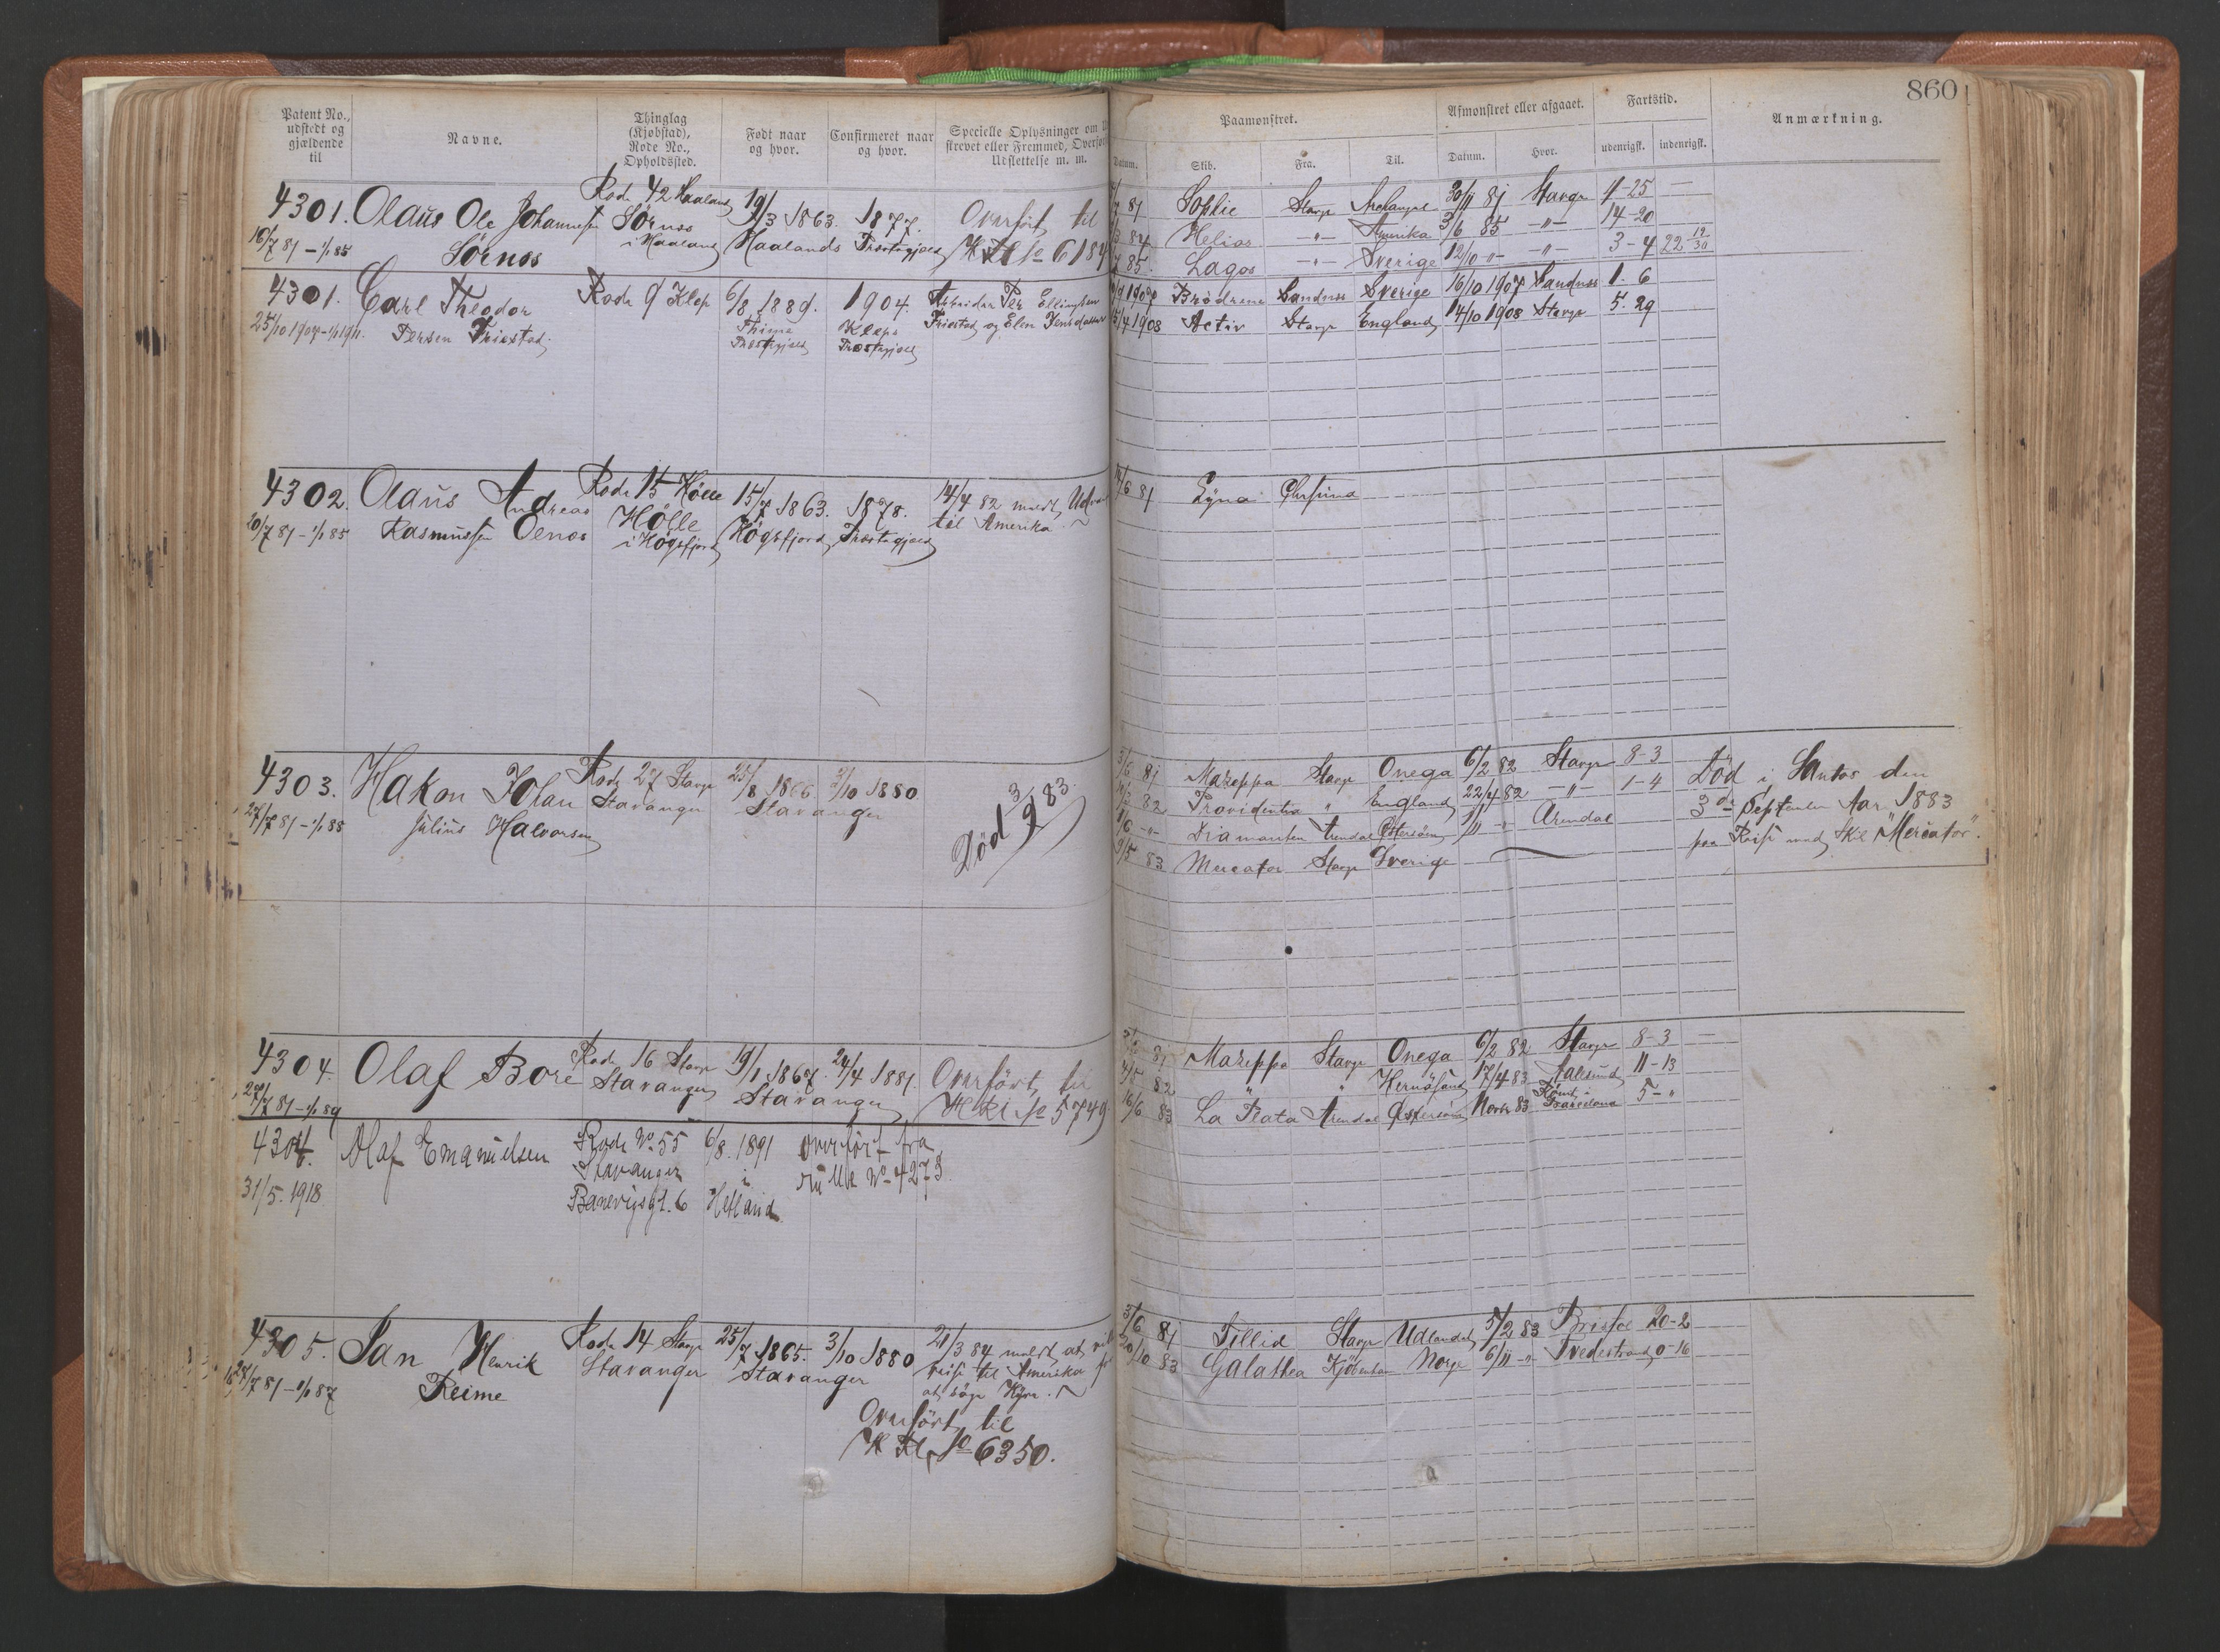 860
Patent No., udstedt og gjældende til
Navne.
Thinglag (Kjøbstad), Rode No., Opholdssted.
Født naar og hvor.
Confirmeret naar og hvor.
Specielle Oplysninger om
Udslettelse m. m.
Paamønstret.
Afmønstret eller afgaaet.
Fartstid.
Anmærkning.
Datum.
Skib.
Fra.
Til.
Datum.
Hvor.
udenrigsk.
indenrigsk.
4301. Olaus Ole Johannesen Rode 42 Haaland 19/3 1863. 1877. Overført til
16/7 81 - 1/1 85 Sørnes Sørnes i Haaland Haalands Præstegjæld No 6184
81 Sophie Stavgr Archangel 30/11 81 Stavgr 4-25 —
84 Helios —"— Amerika 3/6 85 —"— 14-20
85. Lagos —"— Sverige 12/10 —"— —"— 3-4 22 19/30
4301. Carl Theodor Rode 9 Klep 6/8 1889. 1904. Arbeider Per Ellingsen
25/10 1907 - 1/1 1911. Persen Friestad Thime Præstegjæld Kleps Præstegjæld Friestad og Elen Jensdatter
1907 Brødrene Sandnes Sverige 16/10 1907 Sandnes 1-6
/4 1908 Activ Stavgr England 14/10 1908 Stavgr 5-29
4302. Olaus Andreas Rode 15 Hølle 15/7 1863. 1878. 14/4 82 meldt,
20/7 81 - 1/1 85 Rasmussen Oenes Hølle i Høgsfjord Høgsfjord Præstegjæld til Amerika
/6 81
4303. Hakon Johan Rode 27 Stavgr 25/8 1866. 3/10 1880.
27/7 81 - 1/1 85 Julius Halvorsen Stavanger Stavanger Død 3/9 83.
3/6 81 Mazeppa Stavgr Onega 6/2 82 Stavgr 8-3 Død i Santos den
82 Providentia " England 22/4 82 —"— 1-4 3die September Aar 1883
Diamanten Arendal Østersøen /11 —"— Arendal paa Reise med Skb "Mercator".
9/5 83 Mercator Stavgr Sverige
4304. Olaf Bore Rode 16 Stavgr 19/1 1867. 24/4 1881. Overført til
27/7 81 - 1/1 89 Stavanger Stavanger No 5749
81 Mazeppa Stavgr Onega 6/2 82 Stavgr 8-3 —
82 " Hernøsand 17/4 83 Aalesund 11-13
16/6 83 La Plata Arendal Østersøen Novbr 83 Rømt i Barcelona 5-"
4304. Olaf Emanuelsen Rode No. 55 6/8. 1891 overført fra
31/5. 1918 Stavanger i rulle No 4273
Banevigsgt. 6 Hetland
4305. Jan Henrik Rode 14 Stavgr 25/7 1865. 3/10 1880 21/3 84 meldt, at vil
27/7 81 - 1/1 87 Reime Stavanger Stavanger reise til Amerika for
at søge Hyre.
Overført til
No 6350.
3/6 81 Tillid Stavgr Udlandet 5/2 83 Bristol 20-2
20/10 83 Galathea Kjøbenhavn Norge 6/11 —"— Tvedestrand 0-16